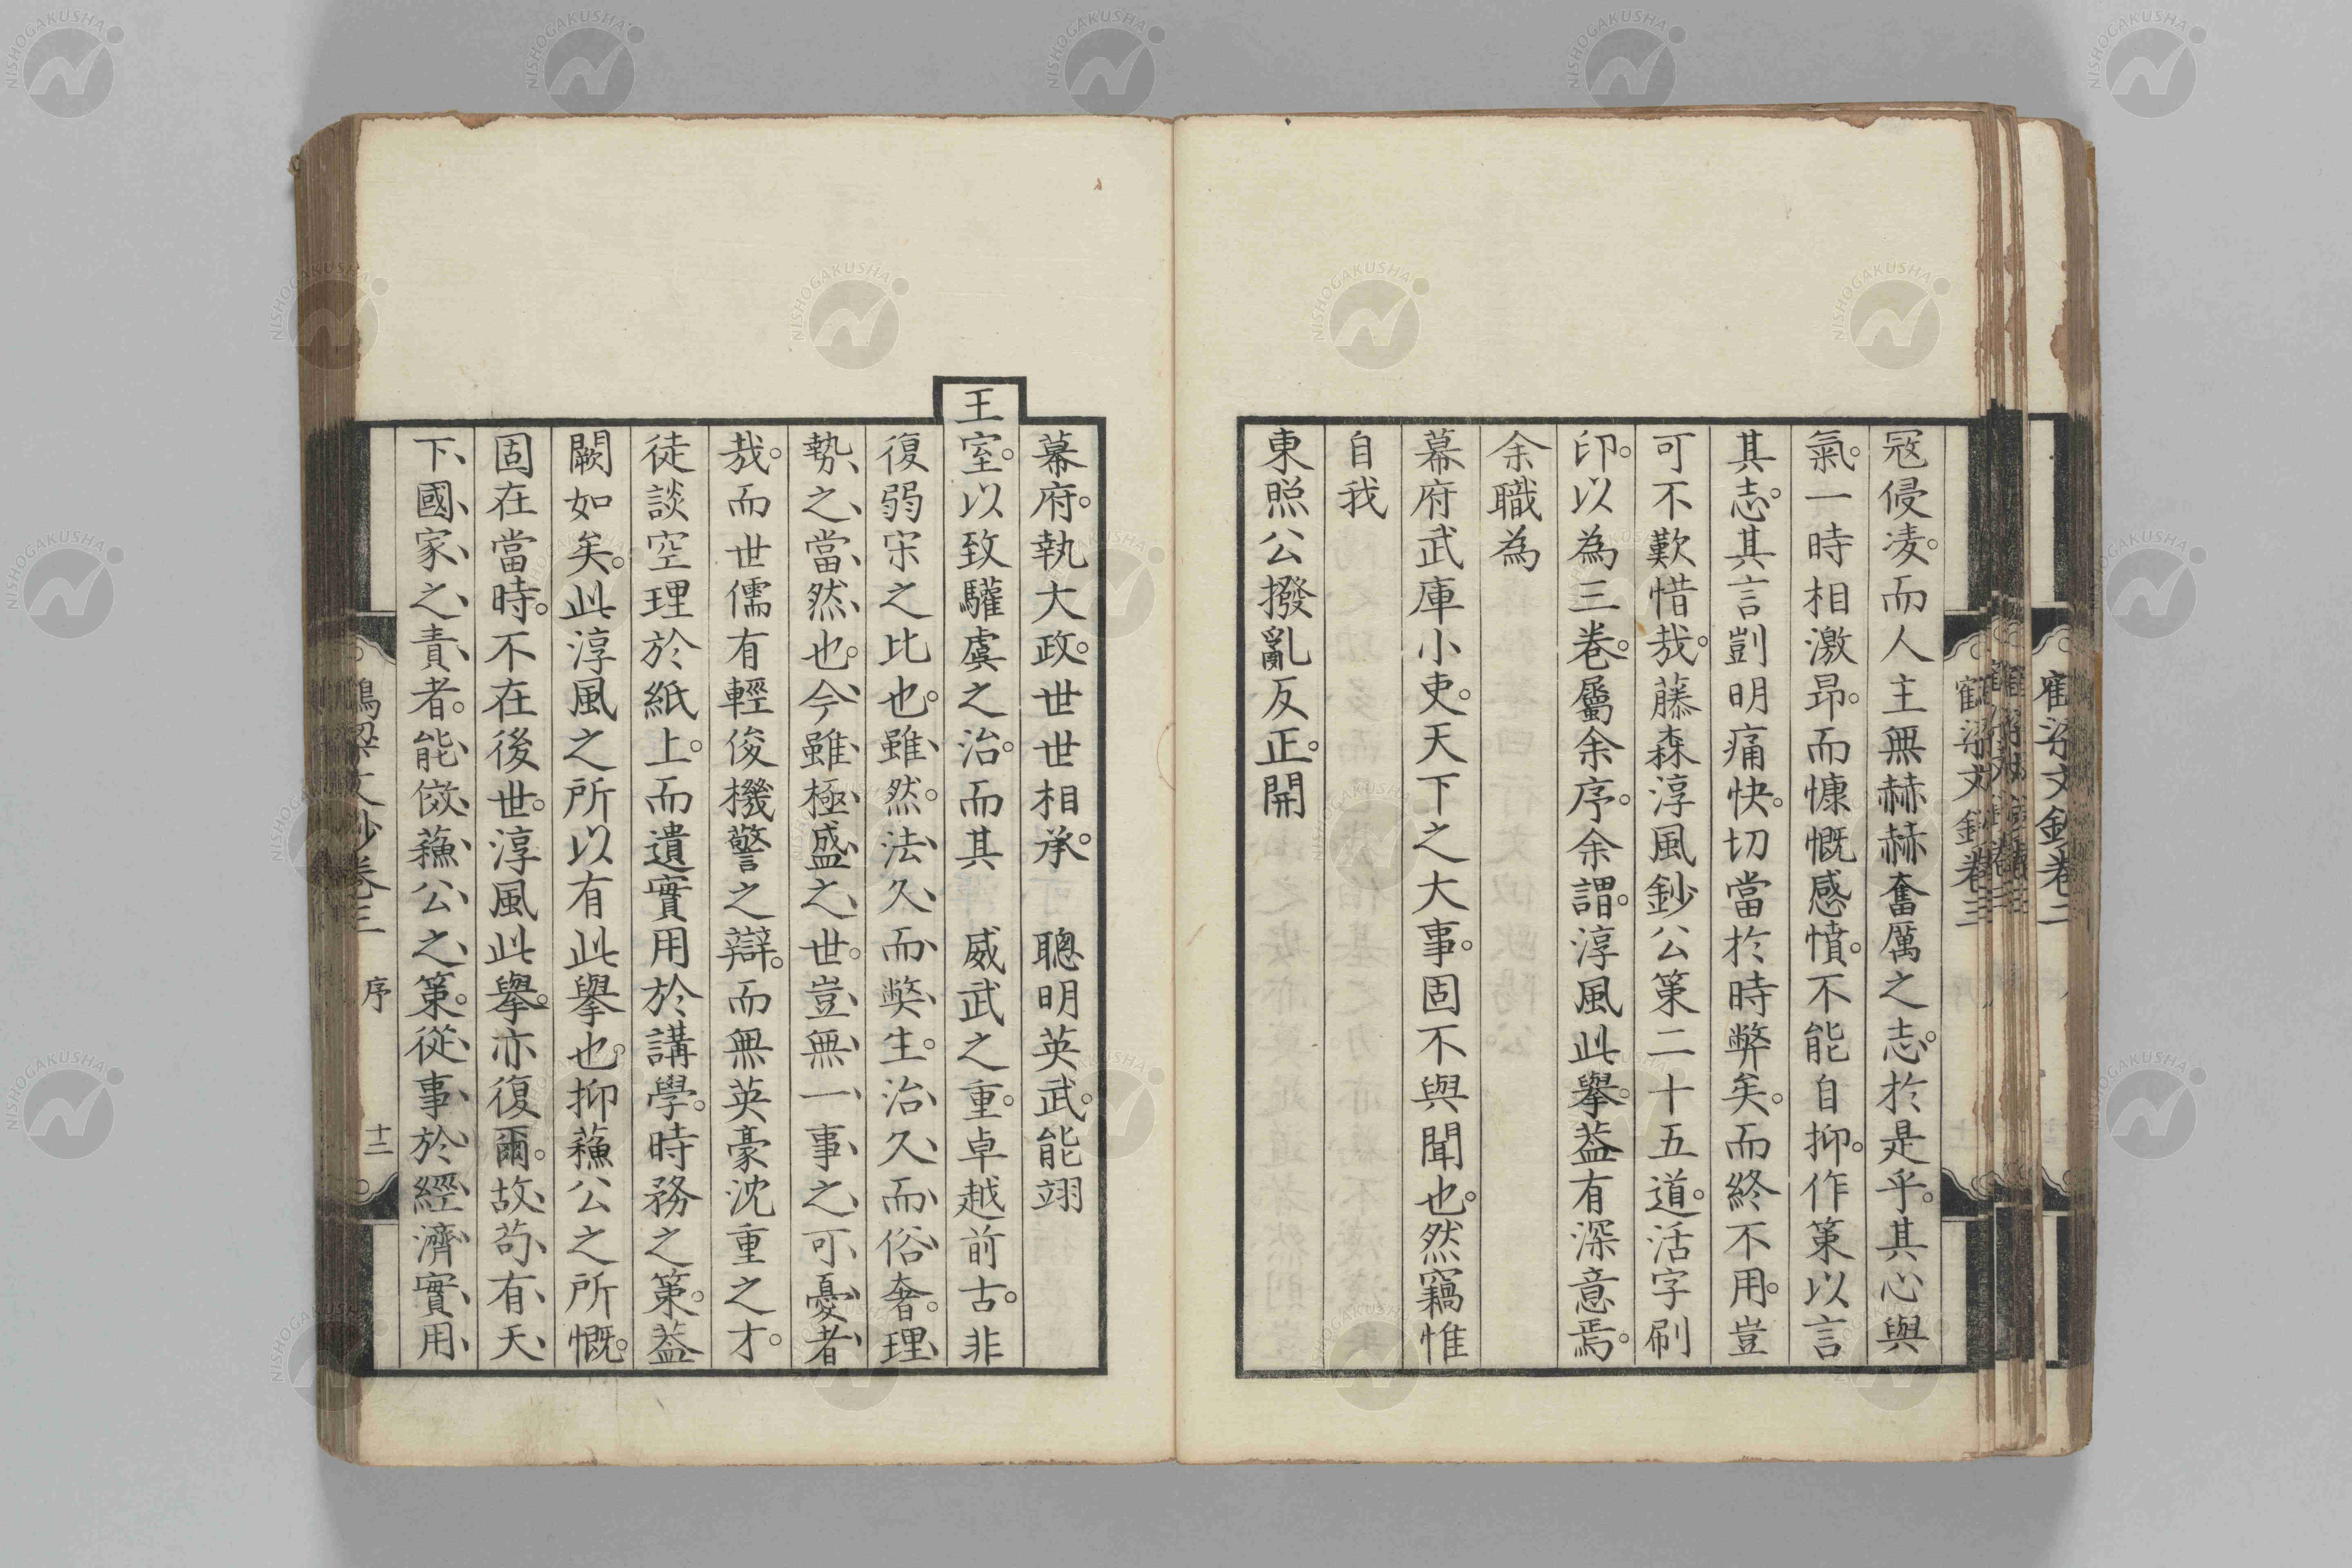 寇侵凌。而人主無赫赫奮厲之志。於是乎。其心與
氣。一時相激昂。而慷慨感憤。不能自抑。作策以言
其志。其言剴明痛快。切當於時弊矣。而終不用。豈
可不歎惜哉。藤森淳風鈔公策二十五道。活字刷
印。以為三卷。屬余序。余謂。淳風此擧。葢有深意焉。
余職為
幕府武庫小吏。天下之大事。固不與聞也。然竊惟
自我
東照公撥亂反正。開
幕府。執大政。世世相承。聰明英武。能翊
王室。以致驩虞之治。而其威武之重。卓越前古。非
復弱宋之比也。雖然。法久而弊生。治久而俗奢。理
勢之當然也。今雖極盛之世。豈無一事之可憂者
哉。而世儒有輕俊機警之辯。而無英豪沈重之才。
徒談空理於紙上。而遺實用於講學。時務之策。葢
闕如矣。此淳風之所以有此擧也。抑蘓公之所慨。
固在當時。不在後世。淳風此擧。亦復爾。故苟有天
下國家之責者。能倣蘓公之策。從事於經濟實用
鶴梁文鈔卷三 序 十二
鶴梁文鈔卷三
鶴梁文鈔卷二
NISHOGAKUSHA